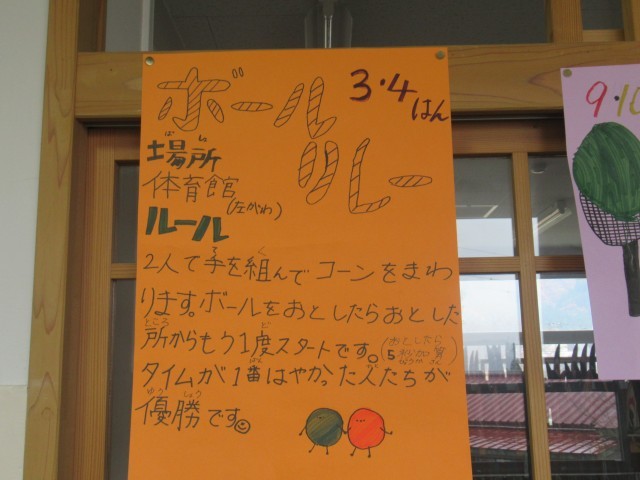 ボールリレー
3・4はん
場所
体育館
(左がわ)
ルール
2人で手を組んでコーンをまわ
ります。ボールをおとしたらおとした
所からもう1度スタートです。
(おとしたら
タイムが1番はやかった人たちが
優勝です。
9・10